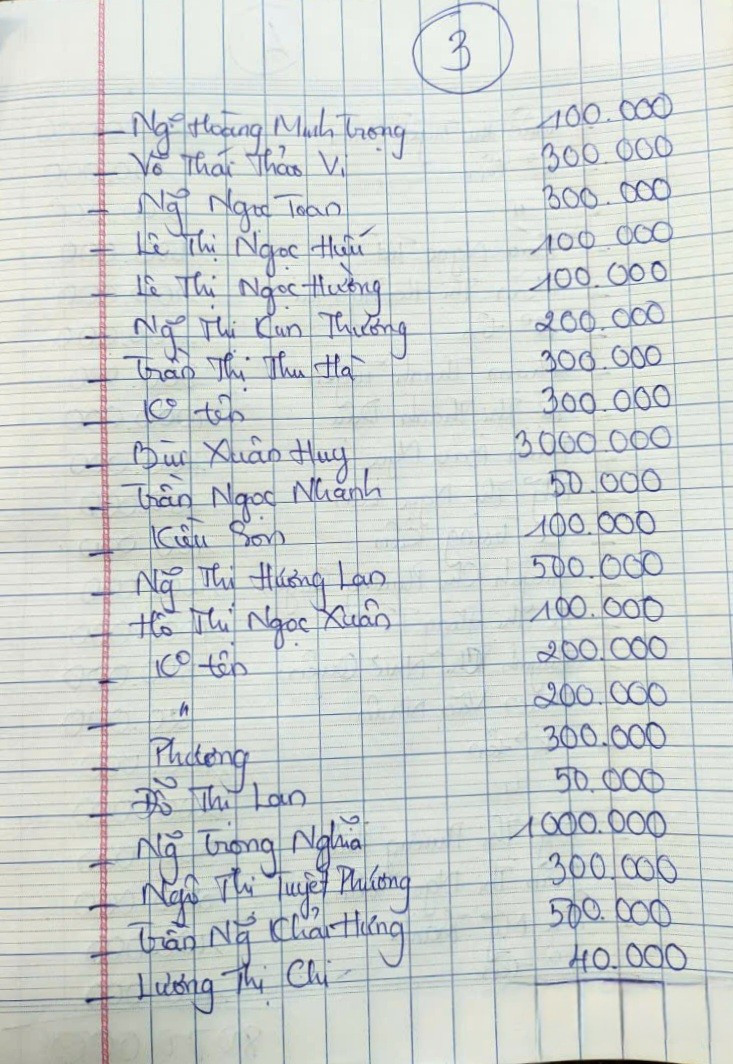 3
- Ng̃ Hoàng Minh Trọng 100.000
- Võ Thái Thảo Vi 300.000
- Ng̃ Ngọc Toan 300.000
- Lê Thị Ngọc Hiếu 100.000
- Lê Thị Ngọc Hường 100.000
- Ng̃ Thị Kim Thương 200.000
- Trần Thị Thu Hà 300.000
- Kº tên 300.000
- Bùi Xuân Huy 3000.000
- Trần Ngọc Nhanh 50.000
- Kiều Sơn 100.000
- Ng̃ Thị Hương Lan 500.000
- Hồ Thị Ngọc Xuân 100.000
- Kº tên 200.000
- " 200.000
- Phương 300.000
- Đỗ Thị Lan 50.000
- Ng̃ Trọng Nghĩa 1000.000
- Ngô Thị Tuyết Phương 300.000
- Trần Ng̃ Khải Hưng 500.000
- Lương Thị Chi 40.000